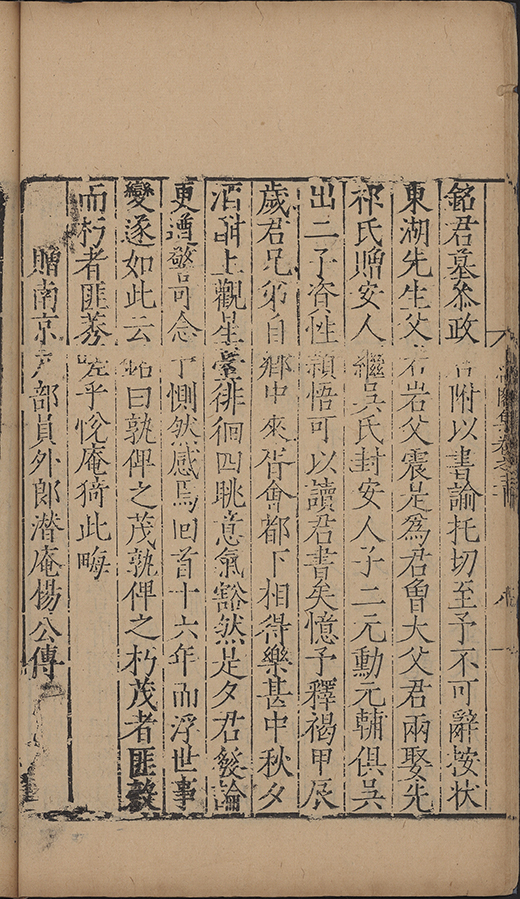 銘君墓叅政君附以書論托切至予不可辭按狀
東湖先生父岩父震是爲君曾大父君兩娶先
祁氏贈安人繼吳氏封安人子二元勳元輔俱吳
出二子資性穎悟可以讀君書矣憶予釋褐甲辰
歲君兄弟自鄉中來胥會都下相得樂甚中秋夕
酒酣上觀星臺徘徊四眺意氣豁然是夕君發論
更遒警可念予惻然感焉回首十六年而浮世事
變遂如此云銘曰孰俾之茂孰俾之朽茂者匪
而朽者匪莠嗟乎悅庵猗此晦
贈南京部員外郎潜庵楊公傳